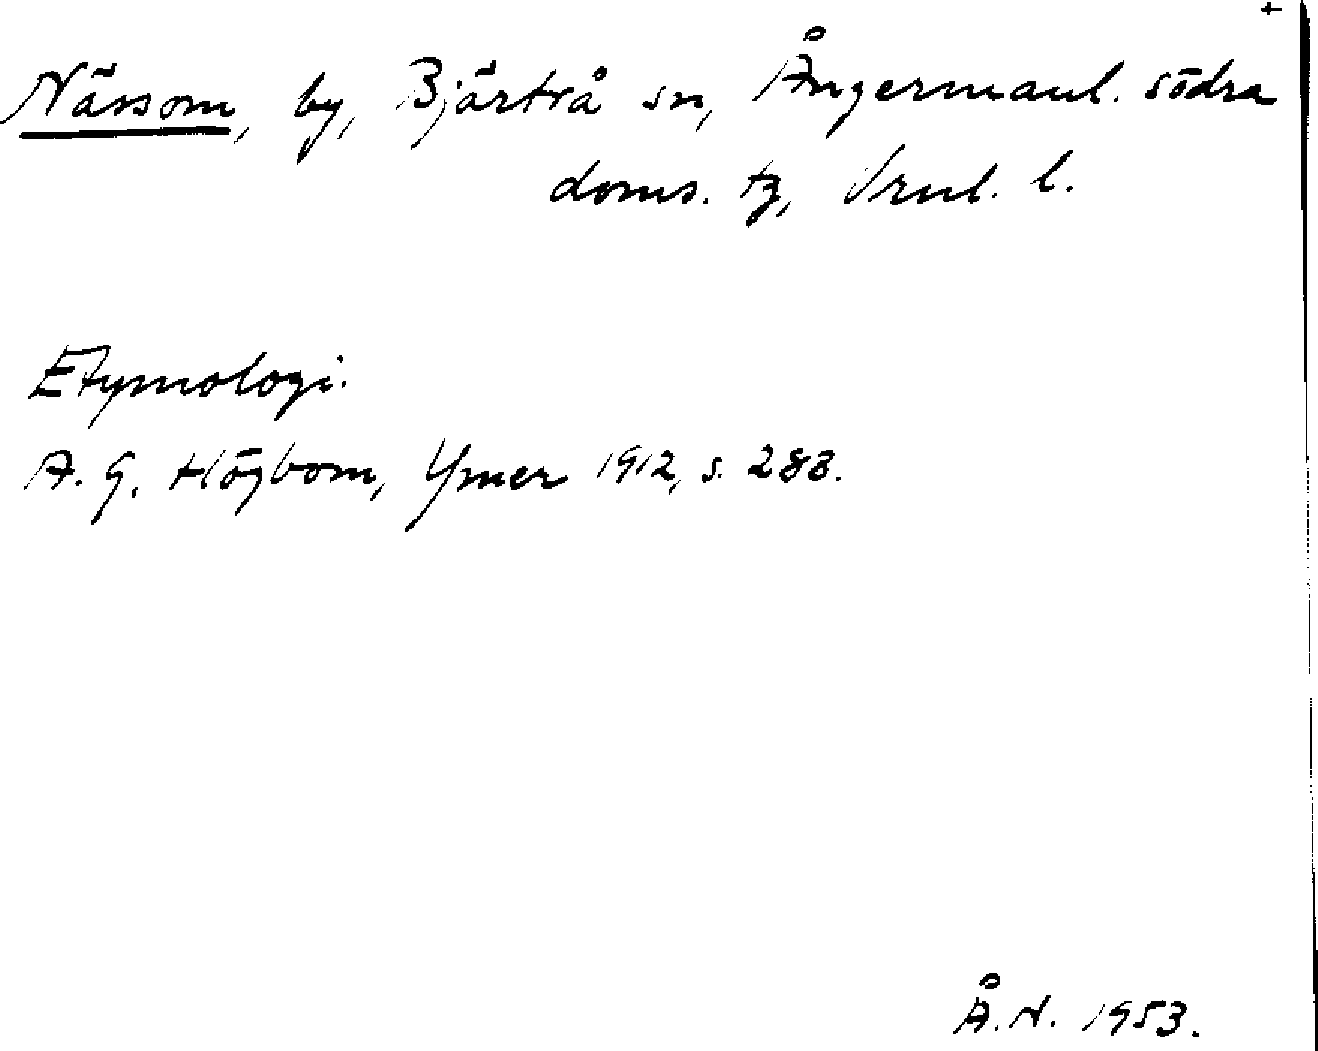 +
Nässom, by, Bjärtrå sn, Ångermanl. södra
doms. tg, Vrnl. l.
Etymologi.
A. G. Högbom, Ymer 1912, s. 283.
Å. N. 1953.